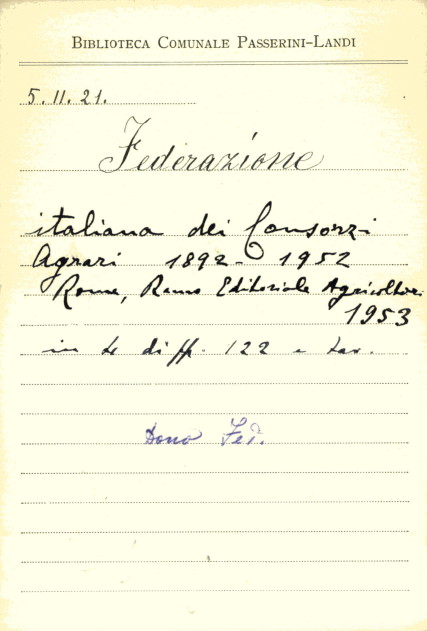 BIBLIOTECA COMUNALE PASSERINI-LANDI
5.11.21.
Federazione
italiana dei Consorzi
Agrari 1892-1952
Roma, Ramo Editoriale Agricoltori
1953
in 4 di pp. 122 e tav.
Dono Fed.